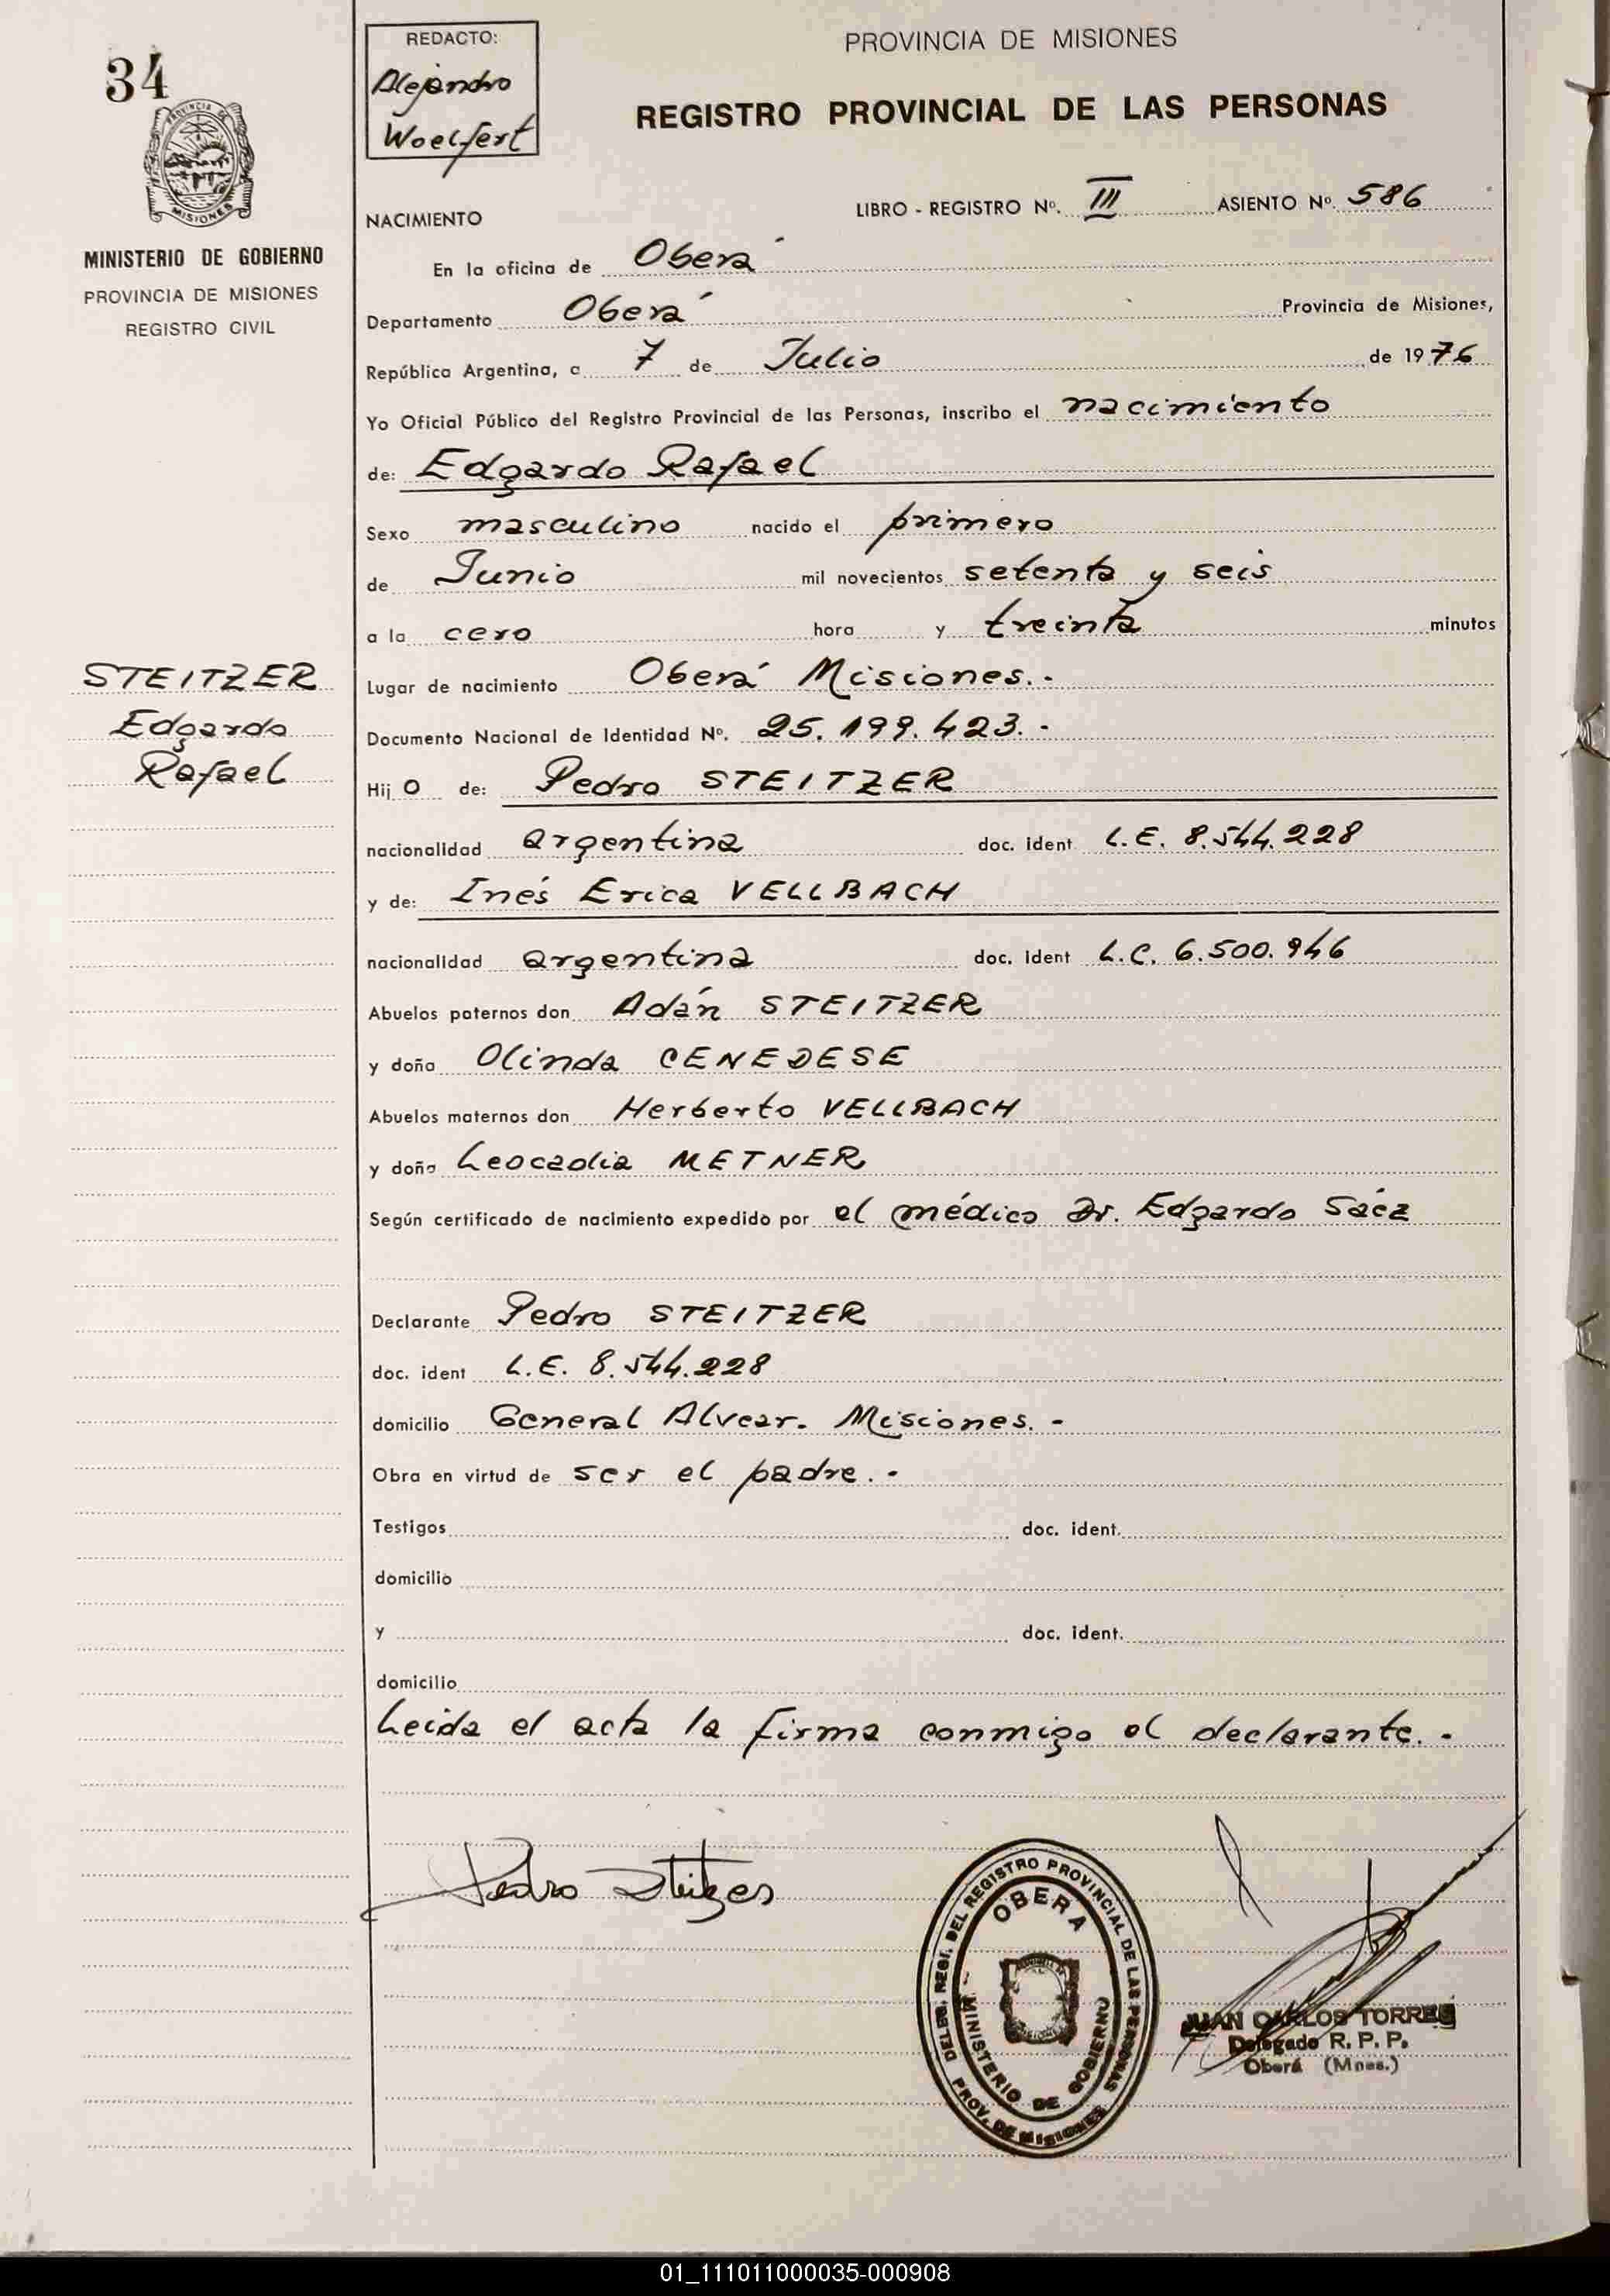 34
MINISTERIO DE GOBIERNO
PROVINCIA DE MISIONES
REGISTRO CIVIL
STEITZER
Edgardo
Rafael
REDACTO:
Alejandro
Woelfert
PROVINCIA DE MISIONES
REGISTRO PROVINCIAL DE LAS PERSONAS
LIBRO - REGISTRO Nº. III ASIENTO Nº 586
NACIMIENTO
En la oficina de Oberá
Departamento Oberá Provincia de Misiones,
República Argentina, a 7 de Julio de 1976
Yo Oficial Público del Registro Provincial de las Personas, inscribo el nacimiento
de: Edgardo Rafael
Sexo masculino nacido el primero
de Junio mil novecientos setenta y seis
a la cero hora y treinta minutos
Lugar de nacimiento Oberá Misiones.-
Documento Nacional de Identidad Nº. 25.199.423.-
Hij o de: Pedro STEITZER
nacionalidad argentina doc. ident L.E. 8.544.228
y de: Inés Erica VELLBACH
nacionalidad argentina doc. ident L.C. 6.500.946
Abuelos paternos don Adán STEITZER
y doña Olinda CENEDESE
Abuelos maternos don Herberto VELLBACH
y doña Leocadia METNER
Según certificado de nacimiento expedido por el médico Dr. Edgardo Sáez
Declarante Pedro STEITZER
doc. ident L.E. 8.544.228
domicilio General Alvear. Misiones.-
Obra en virtud de ser el padre.-
Testigos doc. ident.
domicilio
y doc. ident.
domicilio
Leida el acta la firma conmigo el declarante.-
Pedro Steitzer
DELEG. REGI. DEL REGISTRO PROVINCIAL DE LAS PERSONAS
OBERA
MINISTERIO DE GOBIERNO
PROV. DE MISIONES
JUAN CARLOS TORRES
Delegado R. P. P.
Oberá (Mnes.)
01_111011000035-000908